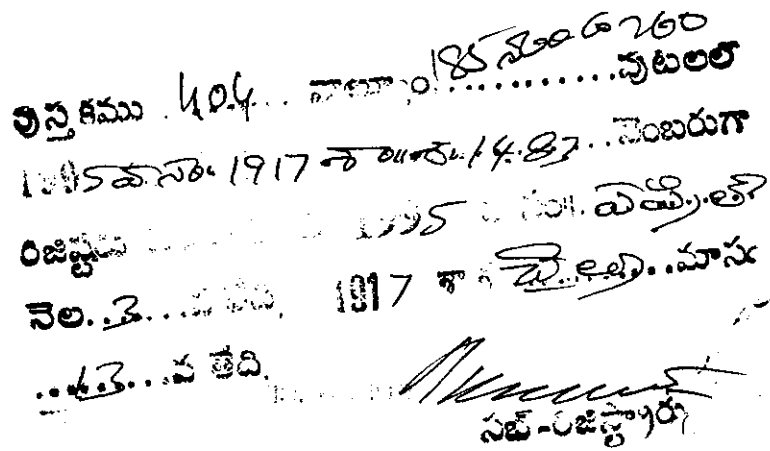 పుస్తకము 404 వాల్యూం 185 నుండి 260 పుటలలో
1995 వ సం. 1917 శా.శ. 1487 నెంబరుగా
రిజిష్టరు 1995 వ సం. ఏప్రిల్
నెల 3 వ తేది, 1917 శా శ చైత్ర మాసం
13 వ తేది.
సబ్-రిజిస్ట్రారు